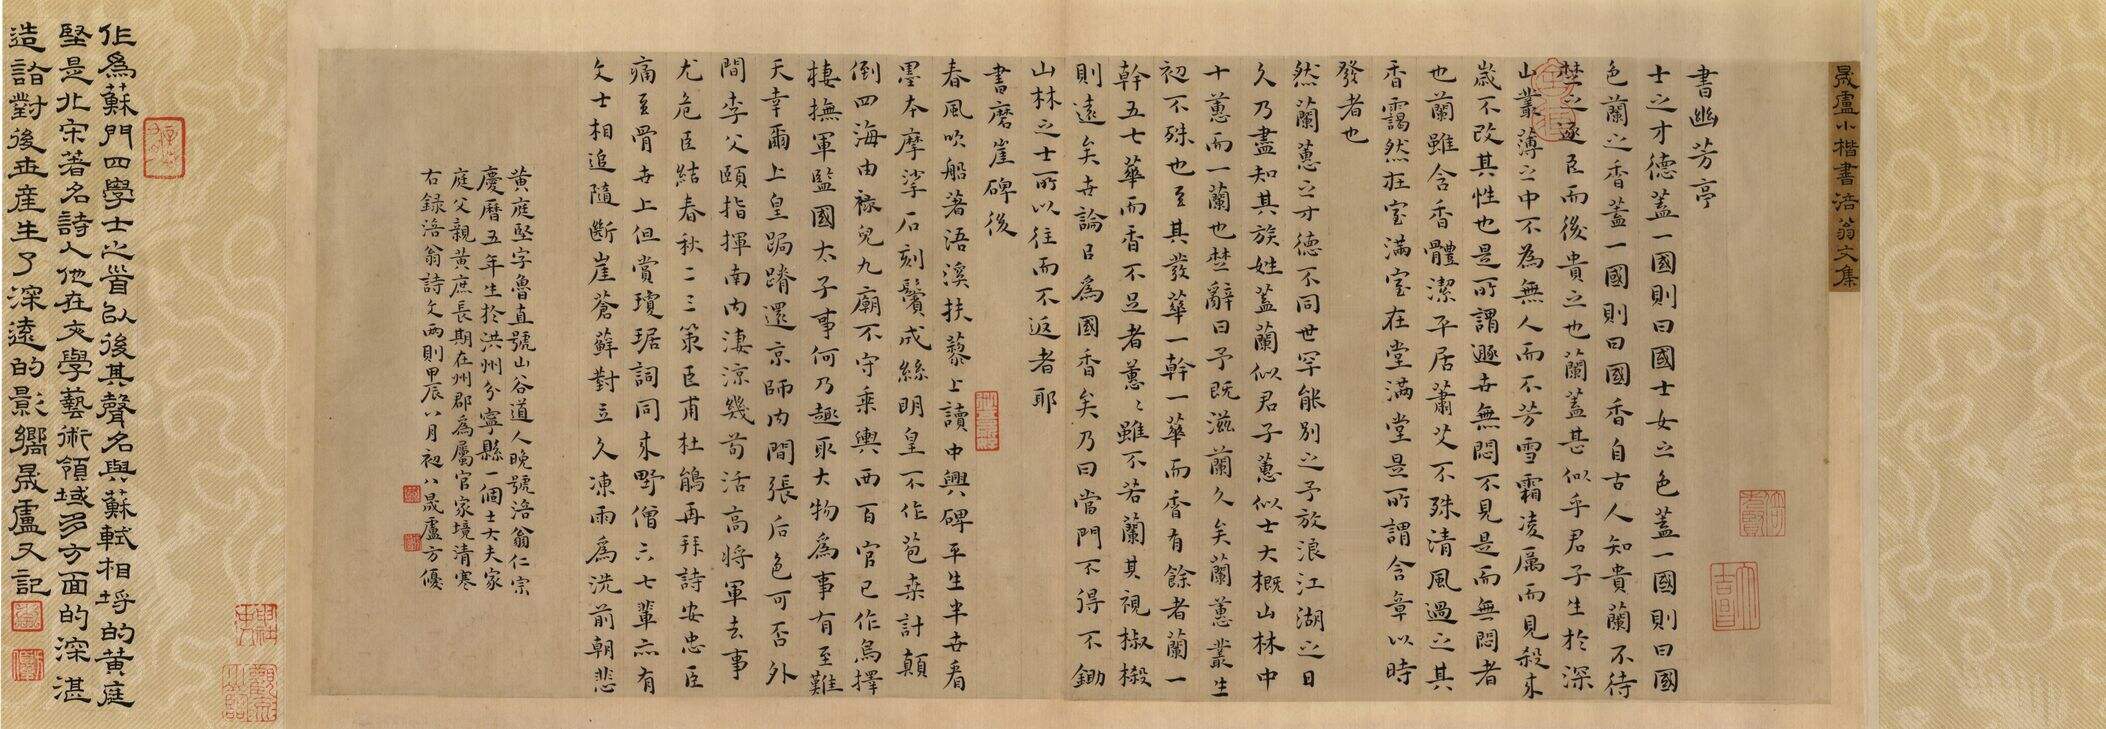 晟盧小楷書涪翁文集
書幽芳亭
士之才德蓋一國則曰國士女之色蓋一國則曰國
色蘭之香蓋一國則曰國香自古人知貴蘭不待
楚之逐臣而後貴之也蘭蓋甚似乎君子生於深
山叢薄之中不為無人而不芳雪霜凌厲而見殺来
歲不改其性也是所謂遯世無悶不見是而無悶者
也蘭雖含香體潔平居蕭艾不殊清風過之其
香靄然在室滿室在堂滿堂是所謂含章以時
發者也
然蘭蕙之才德不同世罕能別之予放浪江湖之日
久乃盡知其族姓蓋蘭似君子蕙似士大概山林中
十蕙而一蘭也楚辭曰予既滋蘭久矣蘭蕙叢生
初不殊也至其發華一幹一華而香有餘者蘭一
幹五七華而香不足者蕙〻雖不若蘭其視椒樧
則遠矣世論以為國香矣乃曰當門不得不鋤
山林之士所以往而不返者耶
書磨崖碑後
春風吹船著浯溪扶藜上讀中興碑平生半世看
墨本摩挲石刻鬢成絲明皇不作苞桑計顛
倒四海由祿兒九廟不守乘輿西百官已作烏擇
棲撫軍監國太子事何乃趣取大物為事有至難
天幸爾上皇跼蹐還京師内間張后色可否外
間李父頤指揮南内淒涼幾苟活高將軍去事
尤危臣結春秋二三策臣甫杜鵑再拜詩安忠臣
痛至骨世上但賞瓊琚詞同来野僧六七輩亦有
文士相追隨斷崖蒼蘚對立久凍雨為洗前朝悲
黃庭堅字魯直號山谷道人晚號涪翁仁宗
慶曆五年生於洪州分寧縣一個士大夫家
庭父親黃庶長期在州郡為屬官家境清寒
右録涪翁詩文兩則甲辰八月初八晟盧方優
作為蘇門四學士之首以後其聲名與蘇軾相埒的黃庭
堅是北宋著名詩人他在文學藝術領域多方面的深湛
造詣對後世產生了深遠的影嚮晟盧又記